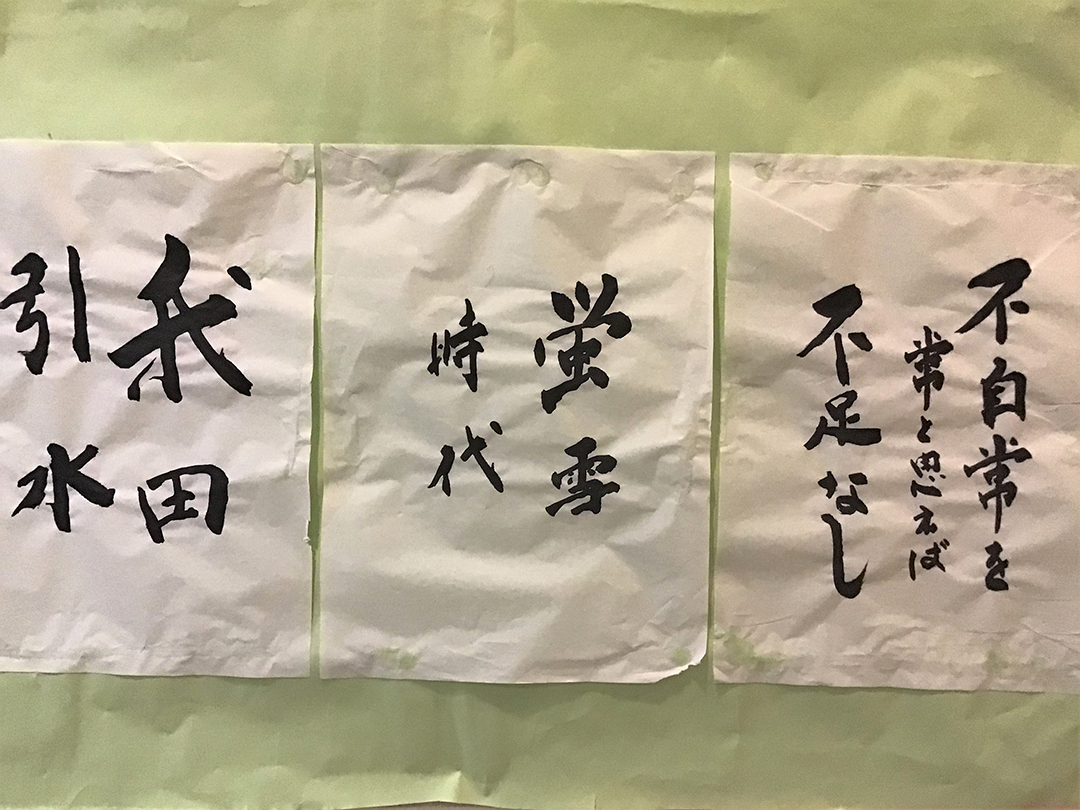 不自常を
常と思えば
不足なし
蛍雪
時代
我田
引水